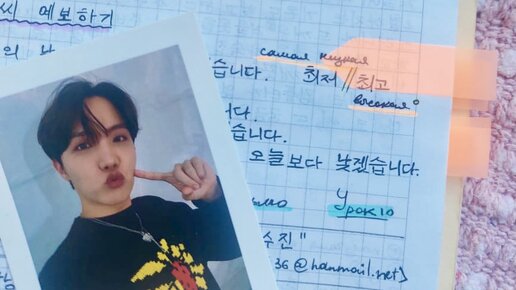 씨 예보하기
самая низкая
습니다. 최저 // 최고
высокая
니다.
습니다.
오늘보다 낮겠습니다.
Урок 10
수진"
36@hanmail.net)